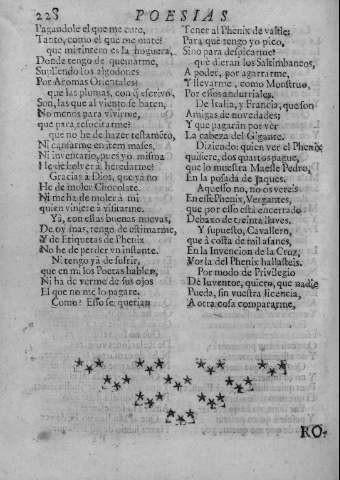 228 POESIAS
Pagandole el que me cure,
Tanto, como el que me mate!
que mi tintero es la hoguera,
Donde tengo de quemarme,
Supliendo los algodones
Por Aromas Orientales:
que las plumas, con q̃ escrivo,
Son, las que al viento se baten,
No menos para vivirme,
que para resucitarme:
que no he de hazer testamẽto,
Ni cansarme en item mases,
Ni inventario, pues yo misma
He de bolver à heredarme!
Gracias à Dios, que ya no
He de moler Chocolate.
Ni me ha de moler à mi
quien viniere à visitarme.
Yà, con estas buenas nuevas,
De oy mas, tengo de estimarme,
Y de Etiquetas de Phenix
No he de perder vn instante.
Ni tengo yà de sufrir,
que en mi los Poetas hablen,
Ni ha de verme de sus ojos
El que no me lo pagare.
Como? Esso se querian
Tener al Phenix de valde;
Para què tengo yo pico,
Sino para despicarme!
que dieran los Saltimbancos,
A poder, por agarrarme,
Y llevarme, como Monstruo,
Por essos andurriales.
De Italia, y Francia, que son
Amigas de novedades;
Y que pagaràn por vèr
La cabeza del Gigante.
Diziendo: quien ver el Phenix
quisiere, dos quartos pague,
que lo muestra Maesse Pedro,
En la posada de Jaques.
Aquesso no, no os vereis
En esse Phenix, Vergantes,
que por esso està encerrado
Debaxo de treinta llaves.
Y supuesto, Cavallero,
que à costa de mil afanes,
En la Invencion de la Cruz,
Vos la del Phenix hallasteis.
Por modo de Privilegio
De Inventor, quiero, que nadie
Pueda, sin vuestra licencia,
A otra cosa compararme.
RO-